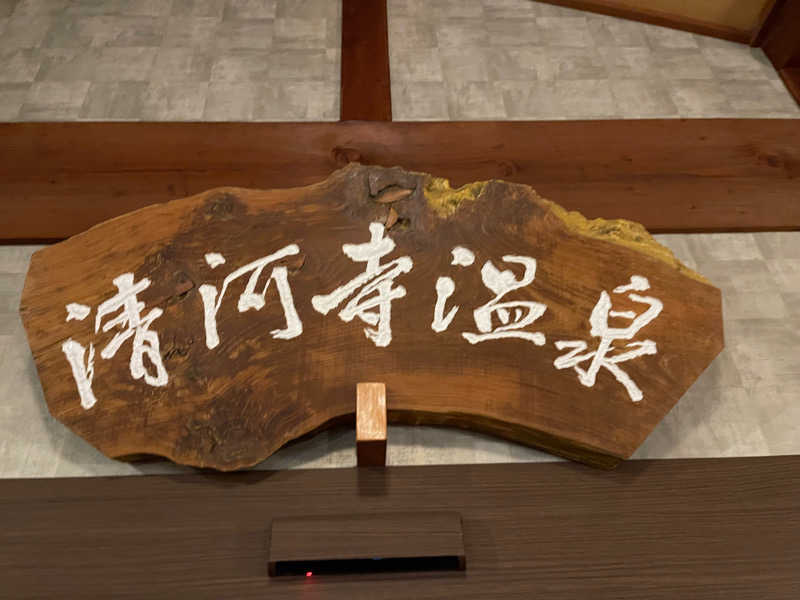 清河寺温泉